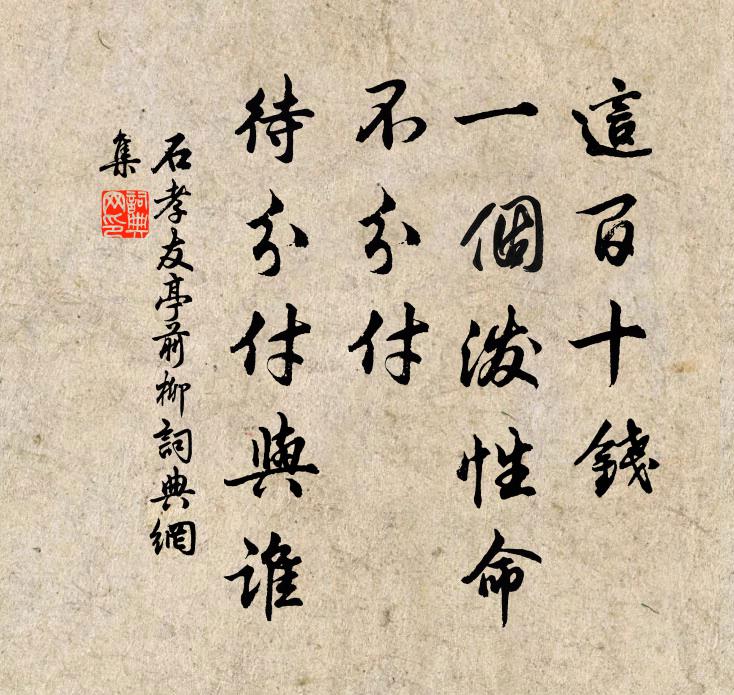 這百十錢
一個潑性命
不分付
待分付與誰
石孝友亭前柳詞典網
集
詞典网印